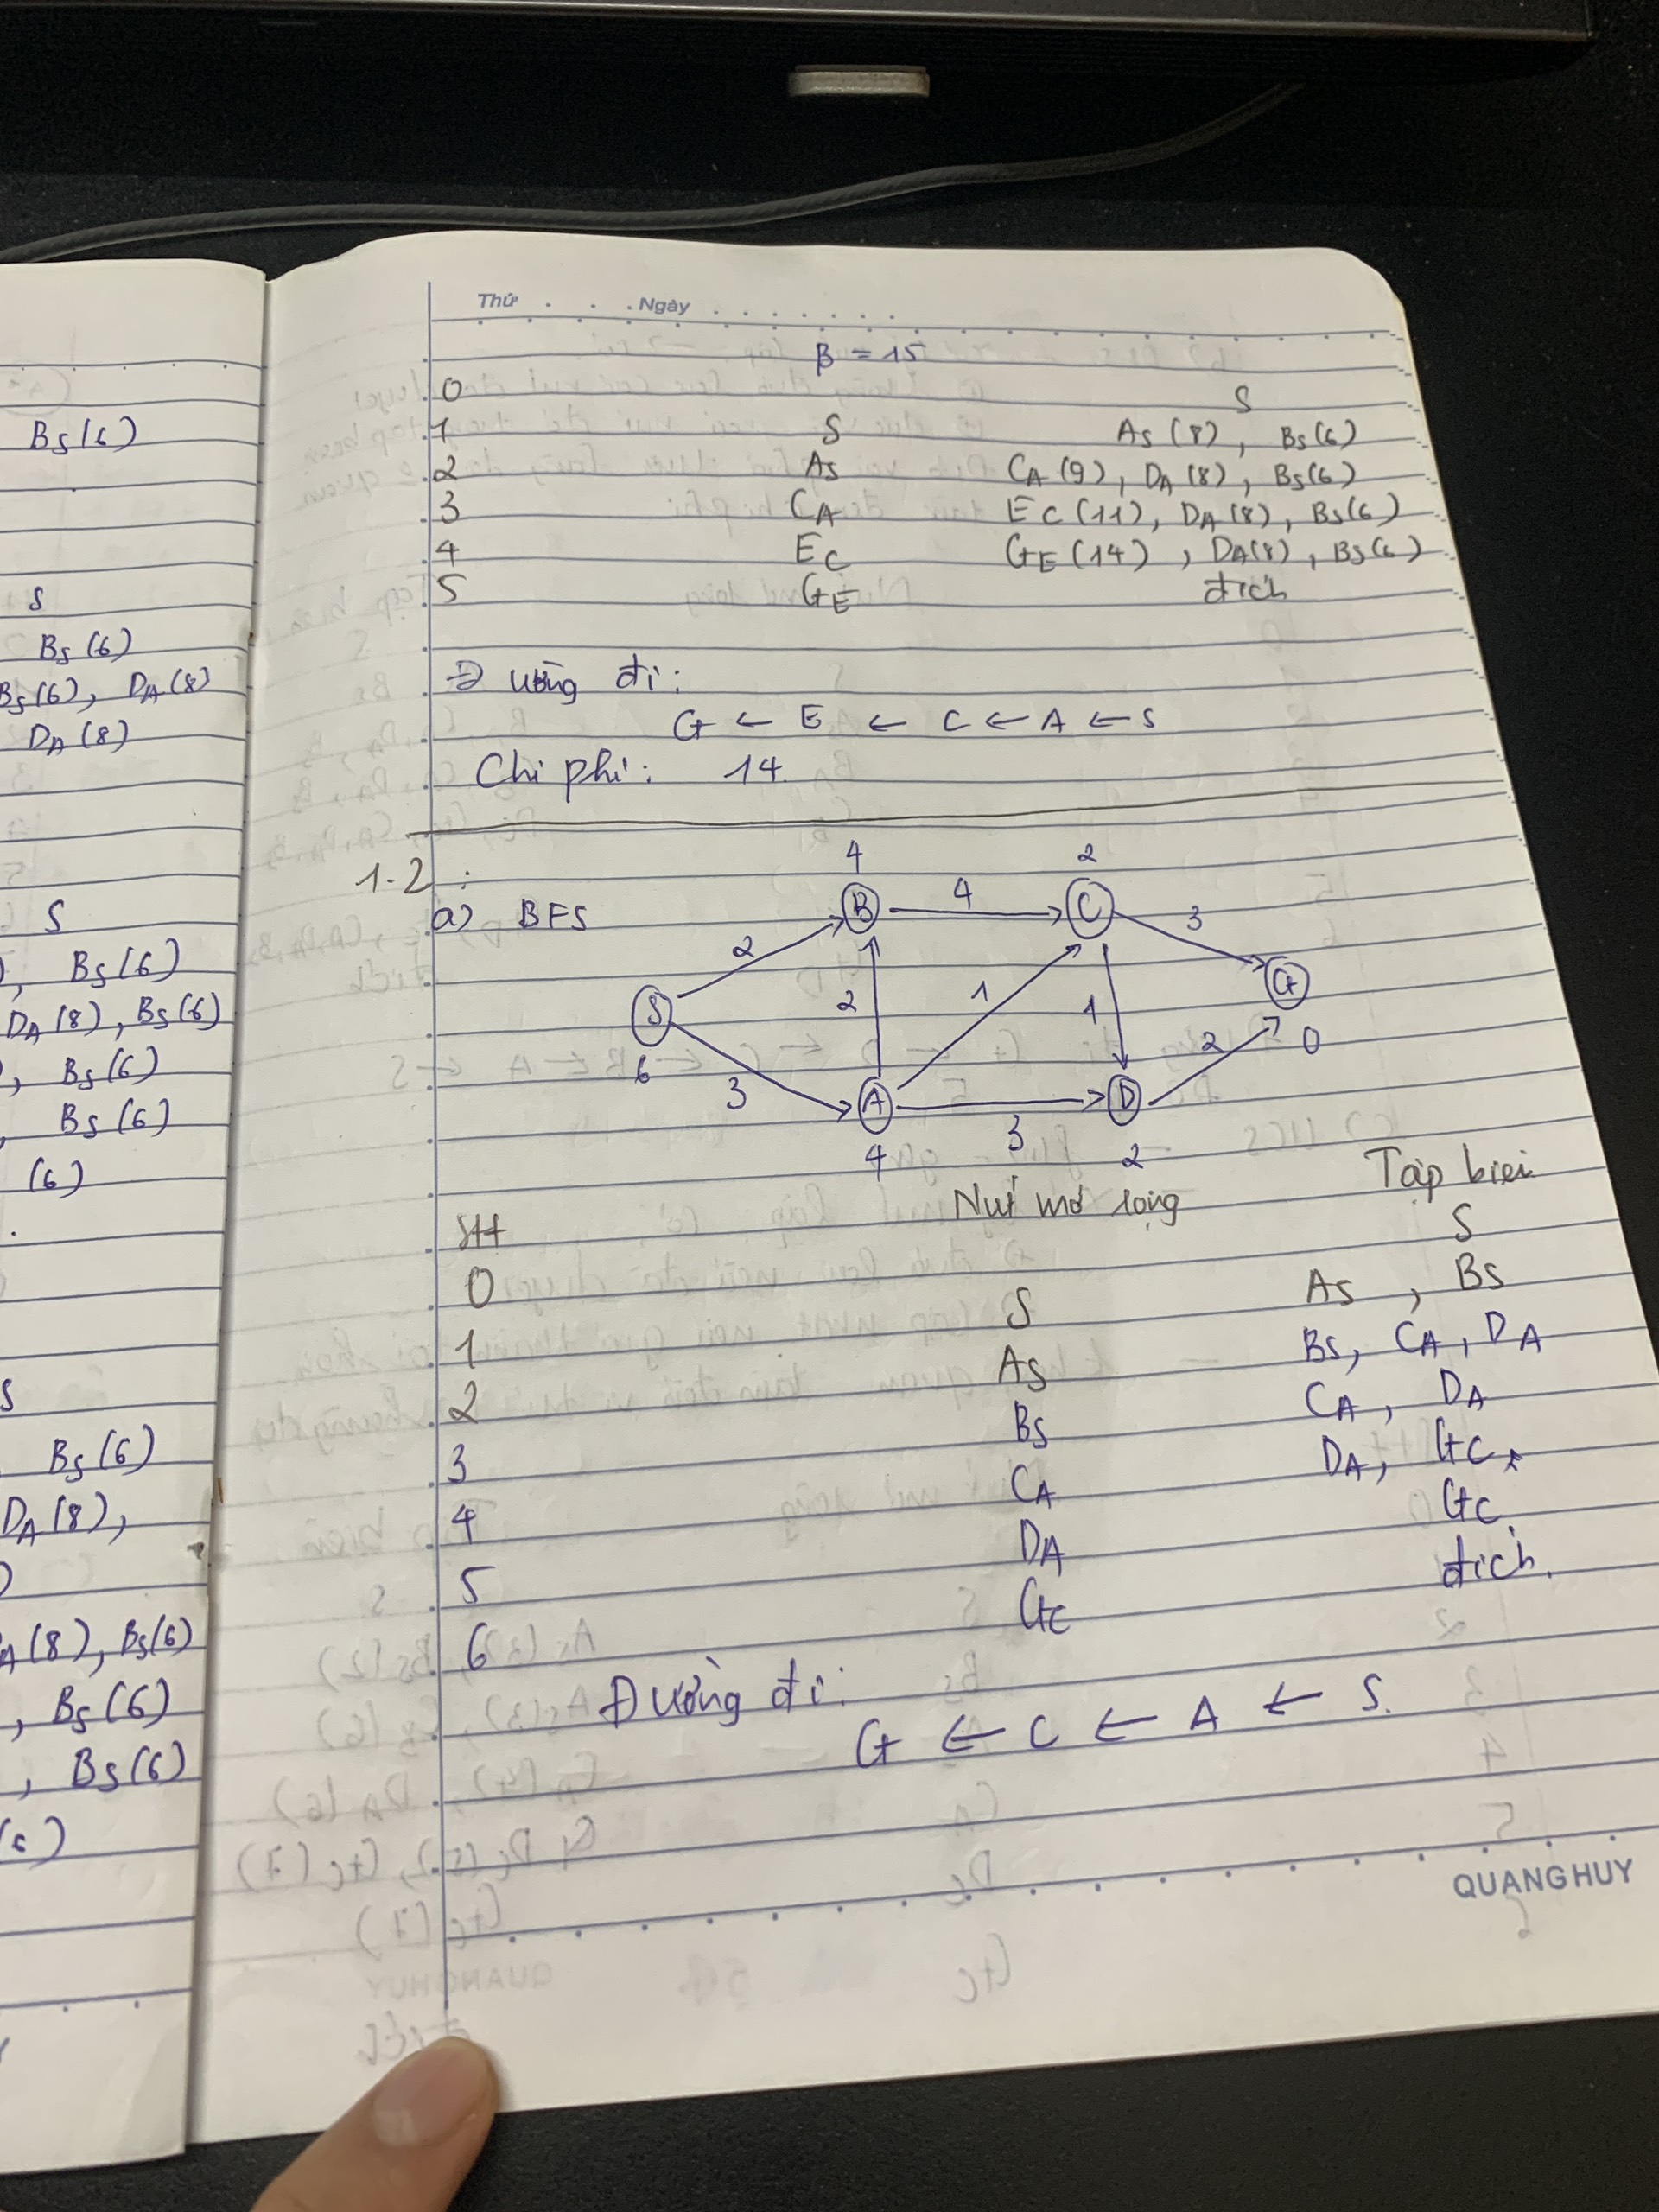 Bs(6)
S
Bs(6)
Bs(6), DA(8)
DA(8)
S
, Bs(6)
DA(8), Bs(6)
, Bs(6)
Bs(6)
(6)
S
Bs(6)
DA(8),
A(8), Bs(6)
, Bs(6)
, Bs(6)
Thứ . . . Ngày . . . . . . .
β = 15
0 S
1 S As(8), Bs(6)
2 As CA(9), DA(8), Bs(6)
3 CA EC(11), DA(8), Bs(6)
4 EC GE(14), DA(8), Bs(6)
5 GE đích
Đường đi:
G ← E ← C ← A ← S
Chi phí: 14
1.2:
a) BFS
4 2
B 4 C 3
2
S 2 1 1 G
6 2 0
3
A 3 D
4 2
SH Nút mở rộng Tập biei
0 S
1 S As, Bs
2 As Bs, CA, DA
3 Bs CA, DA
4 CA DA, GC
5 DA GC
6 GC đích.
Đường đi:
G ← C ← A ← S.
QUANG HUY